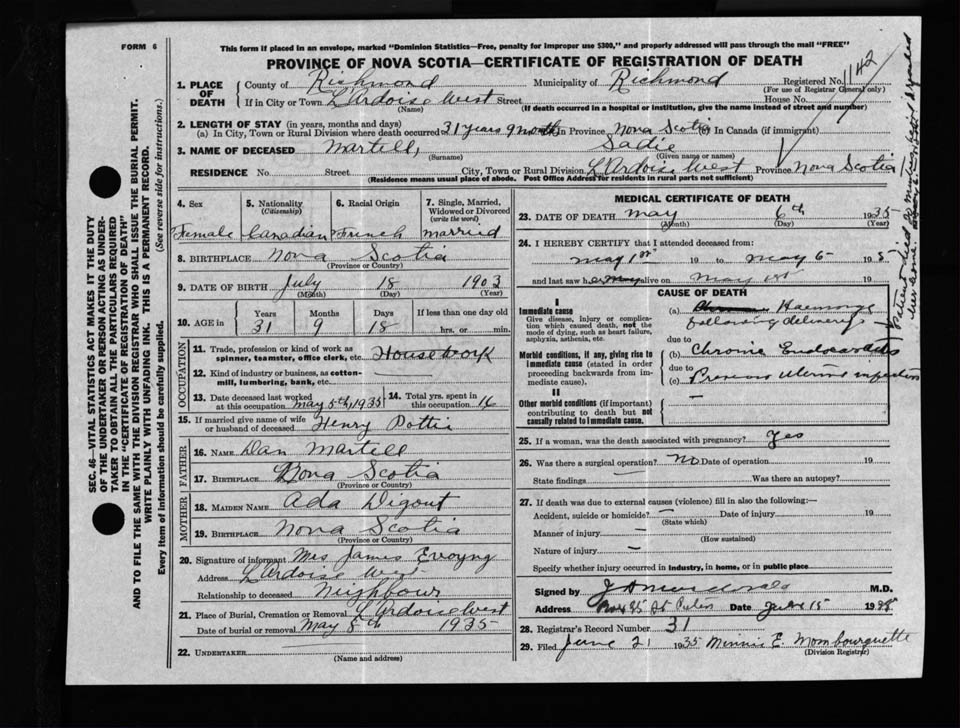 FORM 6
This form if placed in an envelope, marked "Dominion Statistics—Free, penalty for improper use $300," and properly addressed will pass through the mail "FREE"
PROVINCE OF NOVA SCOTIA—CERTIFICATE OF REGISTRATION OF DEATH
1142
1. PLACE OF DEATH County of Richmond Municipality of Richmond Registered No.
(For use of Registrar General only)
If in City or Town L'Ardoise West Street House No.
(Name) (If death occurred in a hospital or institution, give the name instead of street and number)
2. LENGTH OF STAY (in years, months and days)
(a) In City, Town or Rural Division where death occurred 31 years 9 months In Province Nova Scotia (c) In Canada (if immigrant)
3. NAME OF DECEASED Martell, Sadie
(Surname) (Given name or names)
RESIDENCE No. Street City, Town or Rural Division L'Ardoise West Province Nova Scotia
(Residence means usual place of abode. Post Office Address for residents in rural parts not sufficient)
4. Sex Female
5. Nationality (Citizenship) Canadian
6. Racial Origin French
7. Single, Married, Widowed or Divorced (write the word) married
8. BIRTHPLACE Nova Scotia
(Province or Country)
9. DATE OF BIRTH July 18 1903
(Month) (Day) (Year)
10. AGE in Years Months Days If less than one day old
31 9 18 hrs. or min.
OCCUPATION
11. Trade, profession or kind of work as spinner, teamster, office clerk, etc. Housework
12. Kind of industry or business, as cotton-mill, lumbering, bank, etc.
13. Date deceased last worked at this occupation May 5th, 1935
14. Total yrs. spent in this occupation 16
15. If married give name of wife or husband of deceased Henry Pottie
FATHER
16. NAME Dan Martell
17. BIRTHPLACE Nova Scotia
(Province or Country)
MOTHER
18. MAIDEN NAME Ada Digout
19. BIRTHPLACE Nova Scotia
(Province or Country)
20. Signature of informant Mrs James
Address L'Ardoise West
Relationship to deceased Neighbour
21. Place of Burial, Cremation or Removal L'Ardoise West
Date of burial or removal May 8th 1935
22. UNDERTAKER
(Name and address)
MEDICAL CERTIFICATE OF DEATH
23. DATE OF DEATH May 6th 1935
(Month) (Day) (Year)
24. I HEREBY CERTIFY that I attended deceased from:
May 1st 19 to May 6 193
and last saw h alive on May 19
CAUSE OF DEATH
I
Immediate cause
Give disease, injury or complication which caused death, not the mode of dying, such as heart failure, asphyxia, asthenia, etc.
(a)
following delivery
Morbid conditions, if any, giving rise to immediate cause (stated in order proceeding backwards from immediate cause).
due to
(b) Chronic Endocarditis
due to
(c) Previous Uterine infection
II
Other morbid conditions (if important) contributing to death but not causally related to immediate cause.
25. If a woman, was the death associated with pregnancy? Yes
26. Was there a surgical operation? No Date of operation 19
State findings Was there an autopsy?
27. If death was due to external causes (violence) fill in also the following:—
Accident, suicide or homicide? Date of injury 19
(State which)
Manner of injury
(How sustained)
Nature of injury
Specify whether injury occurred in industry, in home, or in public place
Signed by M.D.
Address St Date 15 19
28. Registrar's Record Number 31
29. Filed June 21 1935 Minnie E. Mombourquette
(Division Registrar)
SEC. 46—VITAL STATISTICS ACT MAKES IT THE DUTY
OF THE UNDERTAKER OR PERSON ACTING AS UNDER-
TAKER TO OBTAIN ALL THE PARTICULARS REQUIRED
IN THE "CERTIFICATE OF REGISTRATION OF DEATH"
AND TO FILE THE SAME WITH THE DIVISION REGISTRAR WHO SHALL ISSUE THE BURIAL PERMIT.
WRITE PLAINLY WITH UNFADING INK. THIS IS A PERMANENT RECORD.
Every item of information should be carefully supplied. (See reverse side for instructions.)